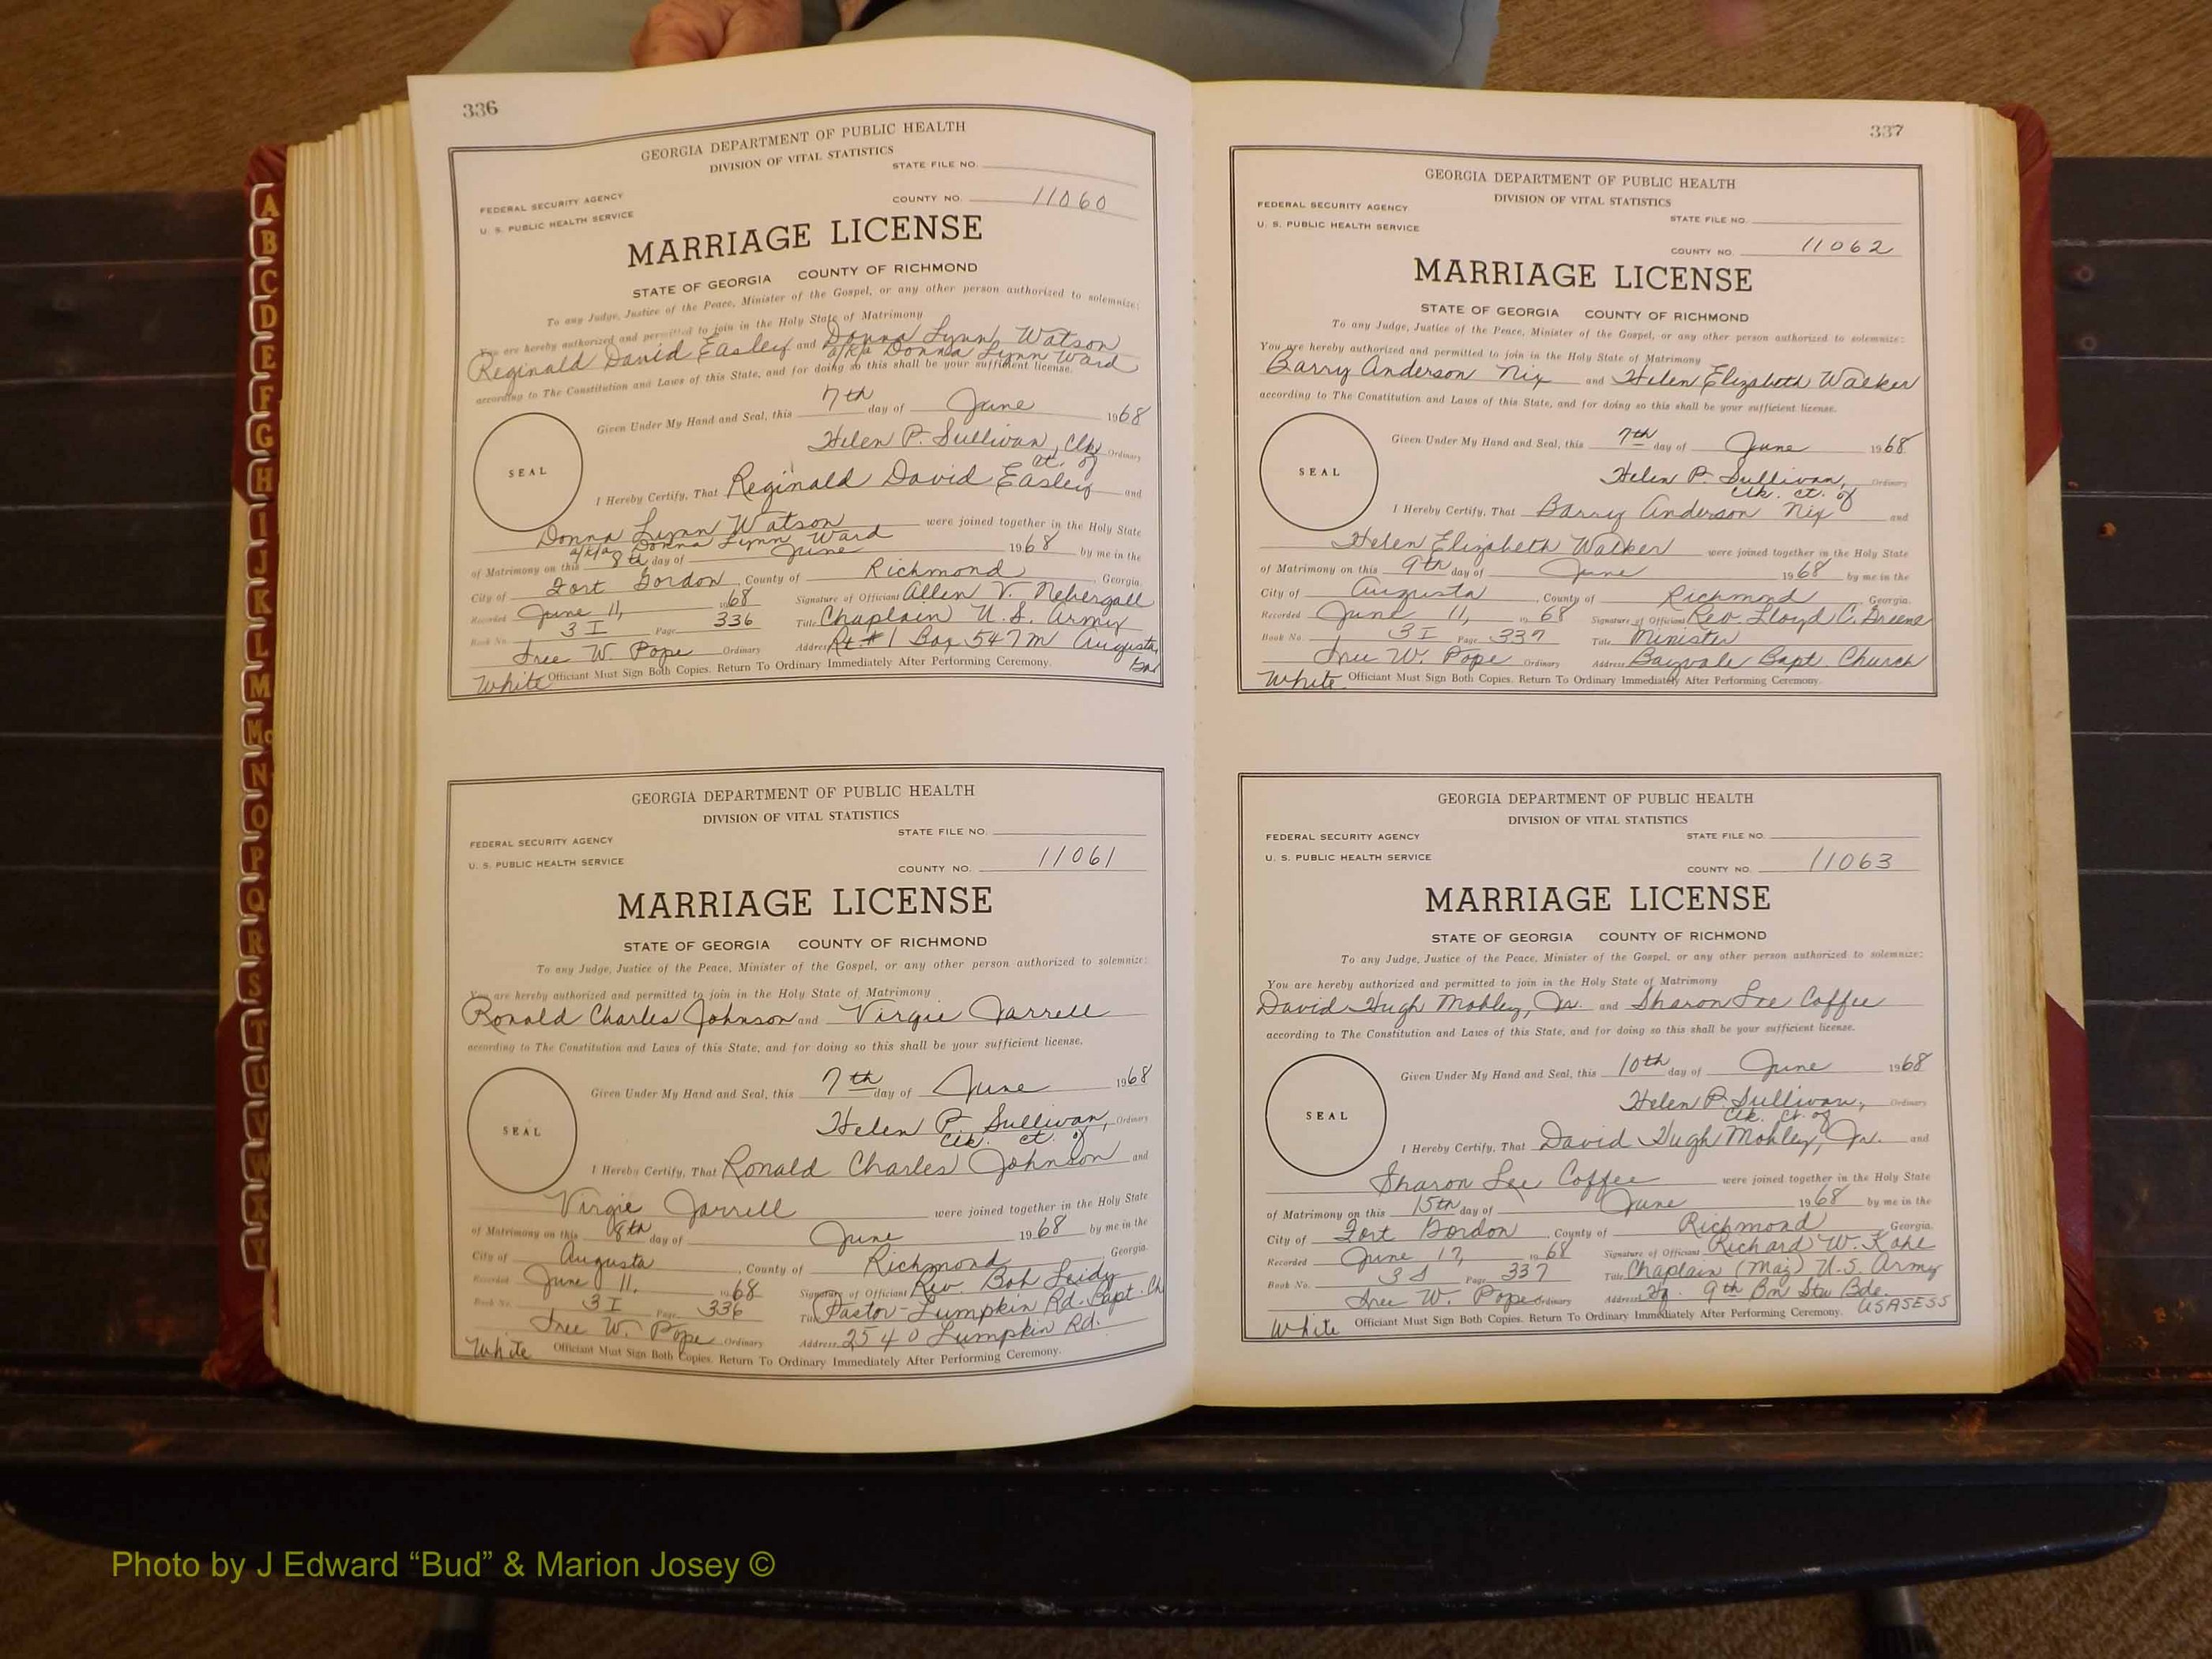 336
GEORGIA DEPARTMENT OF PUBLIC HEALTH
DIVISION OF VITAL STATISTICS
STATE FILE NO.
FEDERAL SECURITY AGENCY
COUNTY NO. 11060
U. S. PUBLIC HEALTH SERVICE
MARRIAGE LICENSE
STATE OF GEORGIA COUNTY OF RICHMOND
To any Judge, Justice of the Peace, Minister of the Gospel, or any other person authorized to solemnize:
You are hereby authorized and permitted to join in the Holy State of Matrimony
Reginald David Easley and Donna Lynn Watson
a/k/a Donna Lynn Ward
according to The Constitution and Laws of this State, and for doing so this shall be your sufficient license.
Given Under My Hand and Seal, this 7th day of June 1968
Helen P. Sullivan, Clk. Ordinary
ct. of
SEAL
I Hereby Certify, That Reginald David Easley and
Donna Lynn Watson were joined together in the Holy State
a/k/a Donna Lynn Ward
of Matrimony on this 8th day of June 1968 by me in the
City of Fort Gordon, County of Richmond, Georgia.
Recorded June 11, 1968 Signature of Officiant Allen V. Nebergall
Book No. 3 I Page 336 Title Chaplain U.S. Army
Free W. Pope Ordinary Address Rt. #1 Box 547M Augusta,
Ga
White Officiant Must Sign Both Copies. Return To Ordinary Immediately After Performing Ceremony.
GEORGIA DEPARTMENT OF PUBLIC HEALTH
DIVISION OF VITAL STATISTICS
STATE FILE NO.
FEDERAL SECURITY AGENCY
U. S. PUBLIC HEALTH SERVICE
COUNTY NO. 11061
MARRIAGE LICENSE
STATE OF GEORGIA COUNTY OF RICHMOND
To any Judge, Justice of the Peace, Minister of the Gospel, or any other person authorized to solemnize:
You are hereby authorized and permitted to join in the Holy State of Matrimony
Ronald Charles Johnson and Virgie Jarrell
according to The Constitution and Laws of this State, and for doing so this shall be your sufficient license.
Given Under My Hand and Seal, this 7th day of June 1968
Helen P. Sullivan, Ordinary
Clk. ct. of
SEAL
I Hereby Certify, That Ronald Charles Johnson and
Virgie Jarrell were joined together in the Holy State
of Matrimony on this 8th day of June 1968 by me in the
City of Augusta, County of Richmond, Georgia.
Recorded June 11, 1968 Signature of Officiant Rev. Bob Leidy
Book No. 3 I Page 336 Title Pastor-Lumpkin Rd. Bapt. Ch
Free W. Pope Ordinary Address 2540 Lumpkin Rd.
White Officiant Must Sign Both Copies. Return To Ordinary Immediately After Performing Ceremony.
337
GEORGIA DEPARTMENT OF PUBLIC HEALTH
DIVISION OF VITAL STATISTICS
FEDERAL SECURITY AGENCY
STATE FILE NO.
U. S. PUBLIC HEALTH SERVICE
COUNTY NO. 11062
MARRIAGE LICENSE
STATE OF GEORGIA COUNTY OF RICHMOND
To any Judge, Justice of the Peace, Minister of the Gospel, or any other person authorized to solemnize:
You are hereby authorized and permitted to join in the Holy State of Matrimony
Barry Anderson Nix and Helen Elizabeth Walker
according to The Constitution and Laws of this State, and for doing so this shall be your sufficient license.
Given Under My Hand and Seal, this 7th day of June 1968
Helen P. Sullivan, Ordinary
Clk. ct. of
SEAL
I Hereby Certify, That Barry Anderson Nix and
Helen Elizabeth Walker were joined together in the Holy State
of Matrimony on this 9th day of June 1968 by me in the
City of Augusta, County of Richmond, Georgia.
Recorded June 11, 1968 Signature of Officiant Rev. Lloyd C. Greene
Book No. 3 I Page 337 Title Minister
Free W. Pope Ordinary Address Bayvale Bapt. Church
White Officiant Must Sign Both Copies. Return To Ordinary Immediately After Performing Ceremony.
GEORGIA DEPARTMENT OF PUBLIC HEALTH
DIVISION OF VITAL STATISTICS
FEDERAL SECURITY AGENCY STATE FILE NO.
U. S. PUBLIC HEALTH SERVICE
COUNTY NO. 11063
MARRIAGE LICENSE
STATE OF GEORGIA COUNTY OF RICHMOND
To any Judge, Justice of the Peace, Minister of the Gospel, or any other person authorized to solemnize:
You are hereby authorized and permitted to join in the Holy State of Matrimony
David Hugh Mobley, Jr. and Sharon Lee Coffee
according to The Constitution and Laws of this State, and for doing so this shall be your sufficient license.
Given Under My Hand and Seal, this 10th day of June 1968
Helen P. Sullivan, Ordinary
Clk. Ct. of
SEAL
I Hereby Certify, That David Hugh Mobley, Jr. and
Sharon Lee Coffee were joined together in the Holy State
of Matrimony on this 15th day of June 1968 by me in the
City of Fort Gordon, County of Richmond, Georgia.
Recorded June 17, 1968 Signature of Officiant Richard W. Kahl
Book No. 3 I Page 337 Title Chaplain (Maj) U.S. Army
Free W. Pope Ordinary Address Hq. 9th Bn Stu Bde.
USASESS
White Officiant Must Sign Both Copies. Return To Ordinary Immediately After Performing Ceremony.
A
B
C
D
E
F
G
H
I
J
K
L
M
Mc
N
O
P
Q
R
S
T
U
V
W
X
Y
Photo by J Edward “Bud” & Marion Josey ©